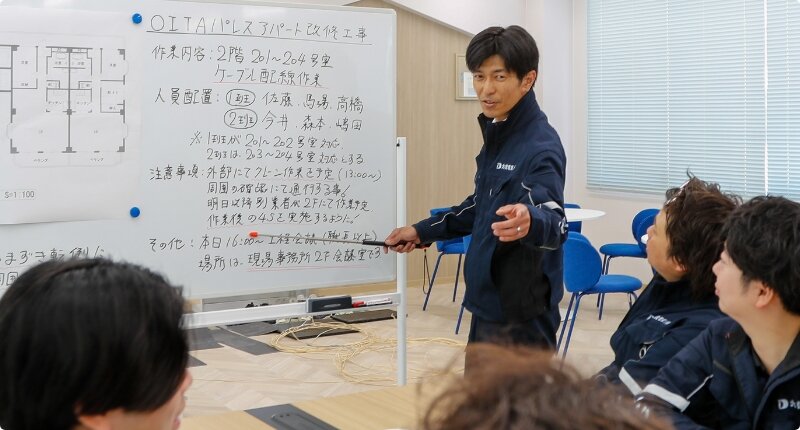 OITAパレスアパート改修工事
作業内容：2階 201～204号室
ケーブル配線作業
人員配置：1班 佐藤、馬場、高橋
2班 今井、森本、嶋田
※1班が201～202号室対応、
2班は203～204号室対応とする
注意事項：外部にてクレーン作業を予定(13:00～)
周囲の確認にて通行する事！
明日は特別業者が2Fにて作業予定
作業後の4Sを実施するように！
その他：本日16:00～工程会議
場所は、現場事務所2F会議室です
つまずき転倒に
周囲
S=1:100